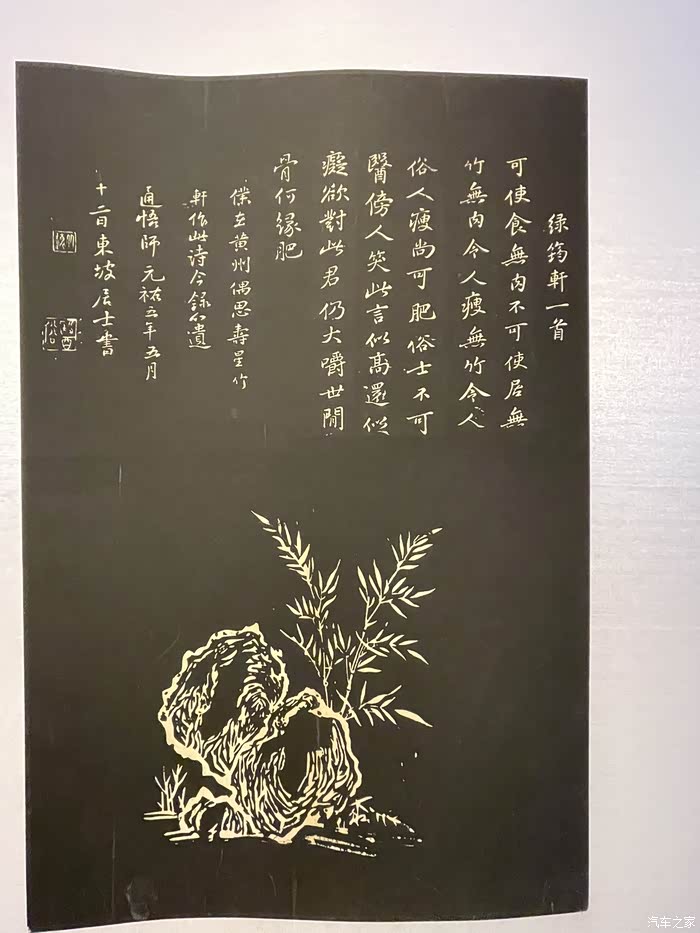 绿筠軒一首
可使食無肉不可使居無
竹無肉令人瘦無竹令人
俗人瘦尚可肥俗士不可
醫傍人笑此言似高還似
癡欲對此君仍大嚼世閒
骨何緣肥
僕在黄州偶思壽星竹
軒作此诗今録以遺
通悟師元祐五年五月
十二日東坡居士書
汽车之家